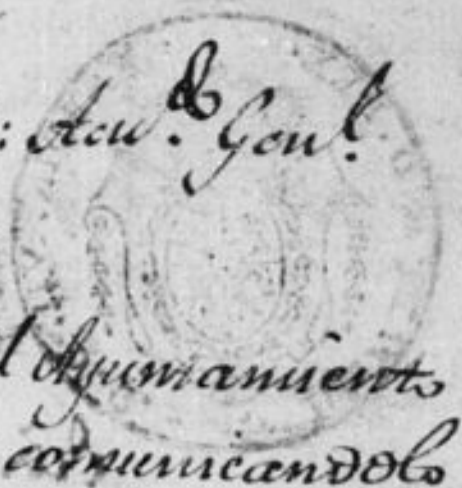 : Acu.do Genl.
l Ayuntamiento
comunicandolo